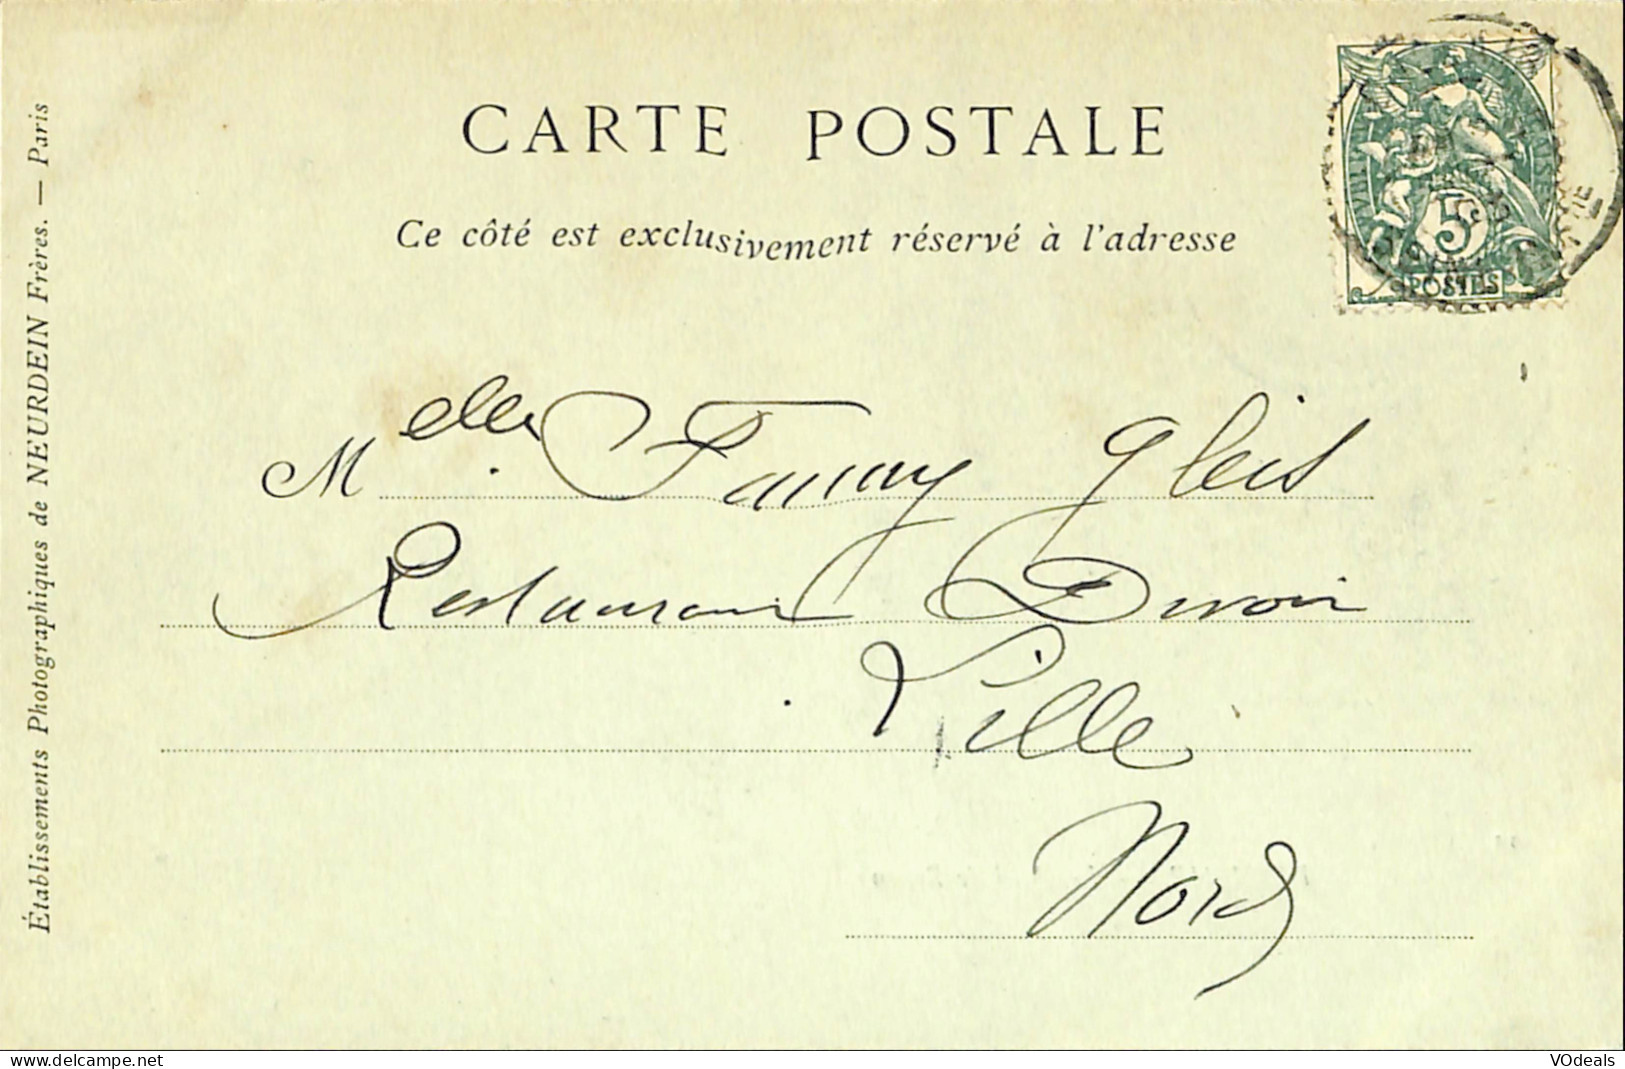 CARTE POSTALE
Ce côté est exclusivement réservé à l'adresse
Établissements Photographiques de NEURDEIN Frères. — Paris
5c
POSTES
Melle Fanny Gleis
Restaurant Divoir
Lille
Nord
www.delcampe.net
VOdeals